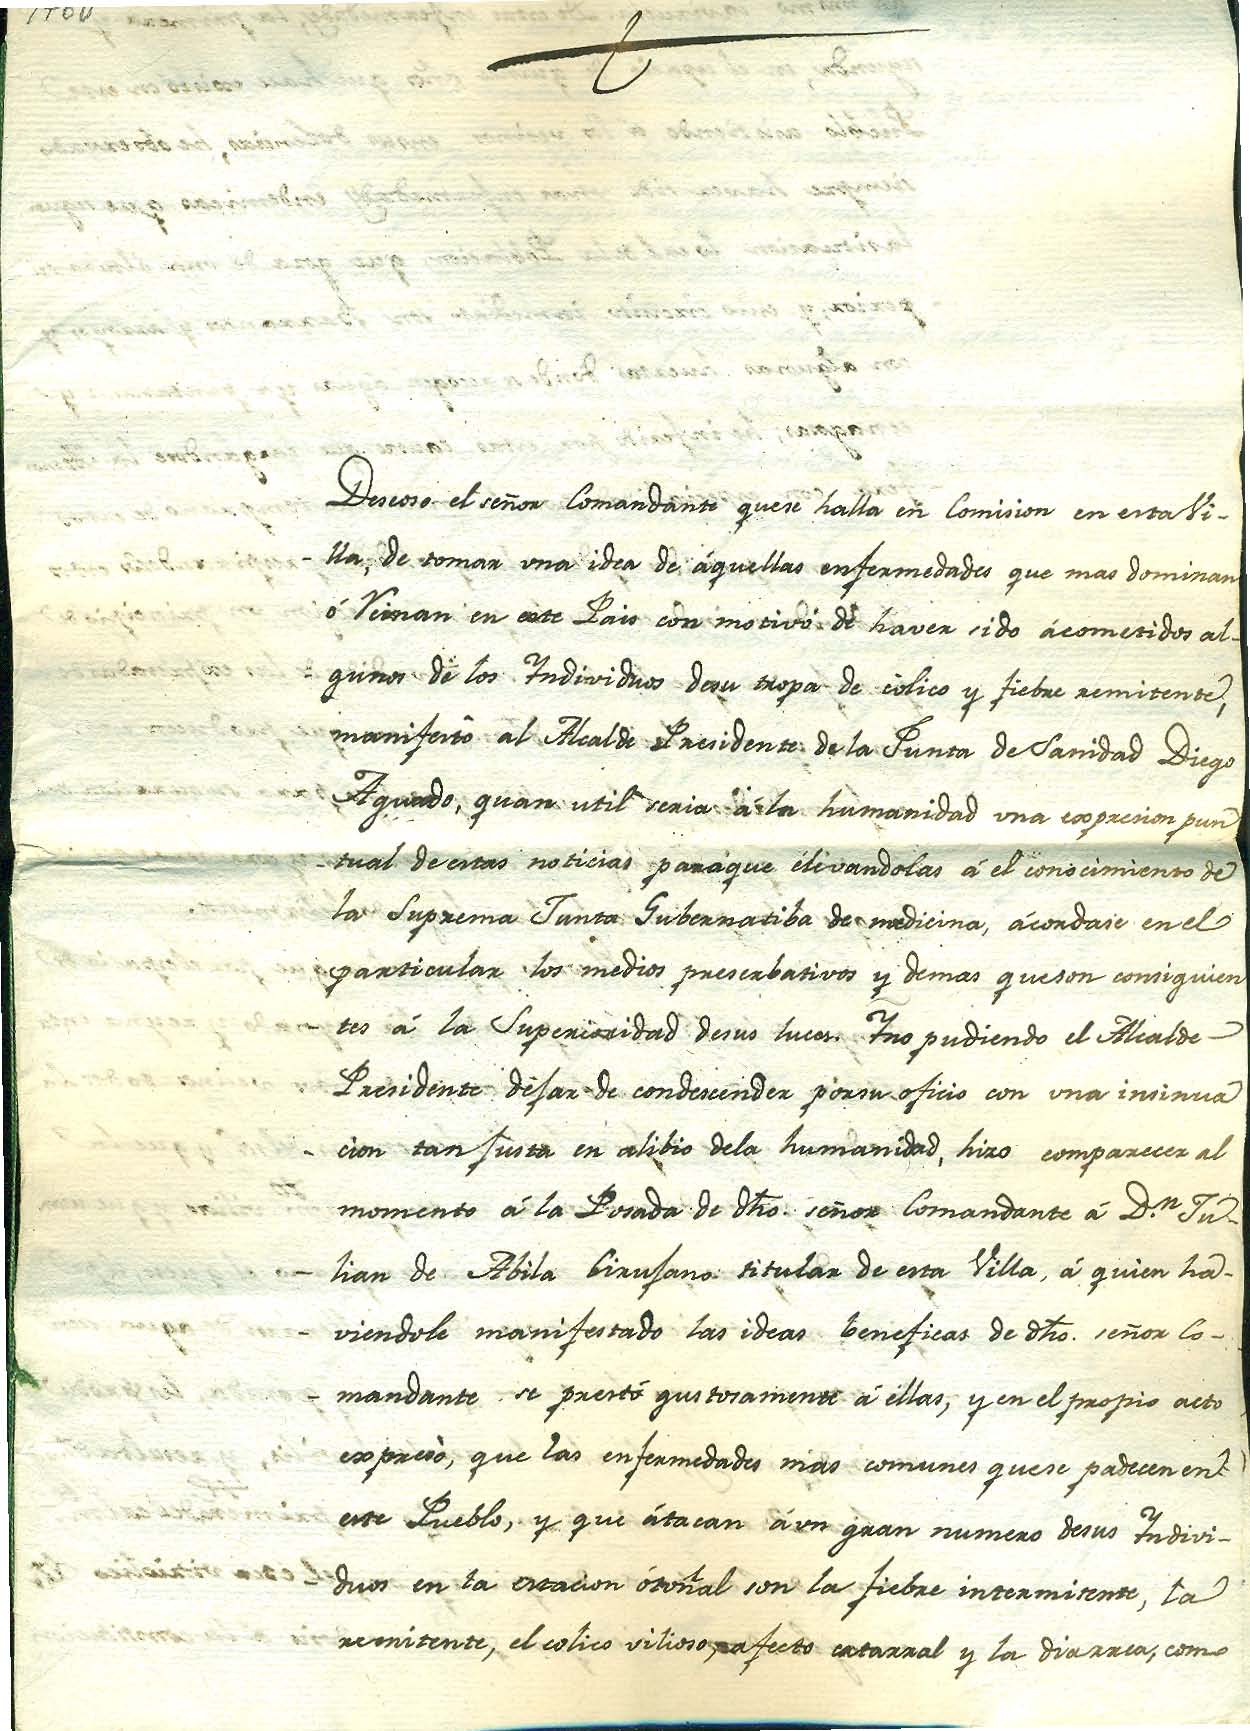 Deseoso el señor Comandante quese halla en Comision en esta Vi-
lla, de tomar vna idea de áquellas enfermedades que mas dominan
ó Reinan en este Pais con motivo de haver sido ácometidos al-
gunos de los Individuos desu tropa de cólico y fiebre remitente,
manifestó al Alcalde Presidente de la Junta de Sanidad Diego
Aguado, quan util seria á la humanidad vna expresion pun
tual de estas noticias paraque élevandolas á el conocimiento de
la Suprema Junta Gubernatiba de medicina, ácordase en el
particular los medios preserbativos y demas queson consiguien
tes á la Superioridad desus luces. Yno pudiendo el Alcalde
Presidente dejar de condescender porsu oficio con vna insinua
cion tan justa en alibio dela humanidad, hizo comparecer al
momento á la Posada de dho. señor Comandante á D.n Ju-
lian de Abila Cirujano titular de esta Villa, á quien ha-
viendole manifestado las ideas beneficas de dho. señor Co-
mandante se prestó gustosamente á éllas, y en el propio acto
expresó, que las enfermedades mas comunes quese padecen en
este Pueblo, y que átacan ávn gran numero desus Indivi-
duos en la estacion ótoñal son la fiebre intermitente, la
remitente, el colico vilioso, afecto catarral y la diarrea, como